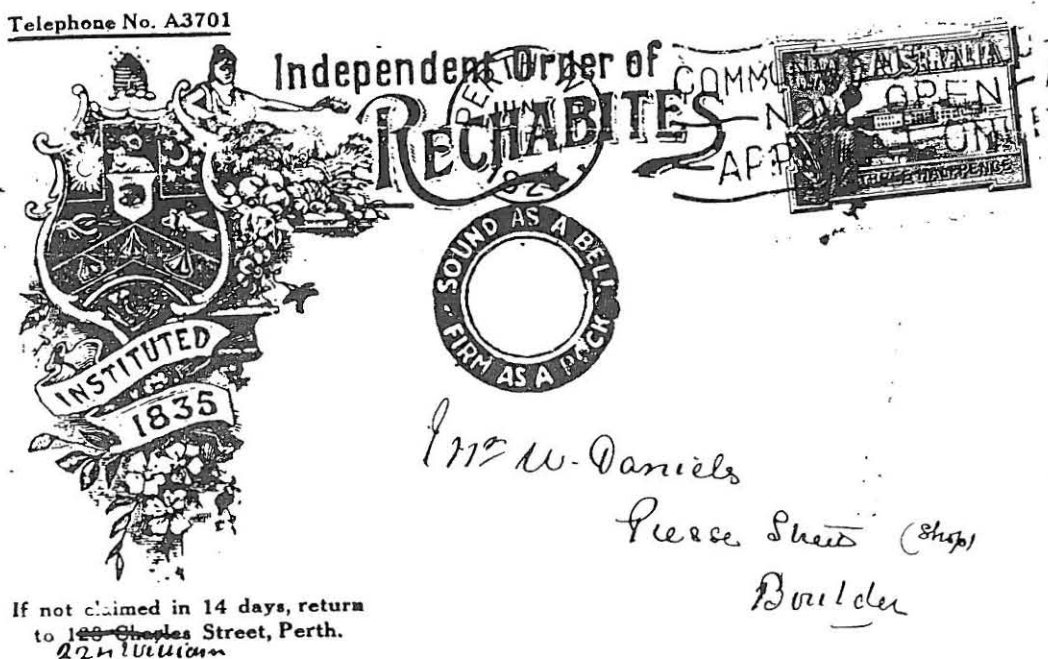 Telephone No. A3701
Independent Order of
RECHABITES
PERTH
JUN
COMM
NOW OPEN
APP
ON
AUSTRALIA
THREE HALFPENCE
SOUND AS A BELL
FIRM AS A ROCK
INSTITUTED
1835
Mr W. Daniels
Piesse Street (Shop)
Boulder
If not claimed in 14 days, return
to 128 Charles Street, Perth.
William